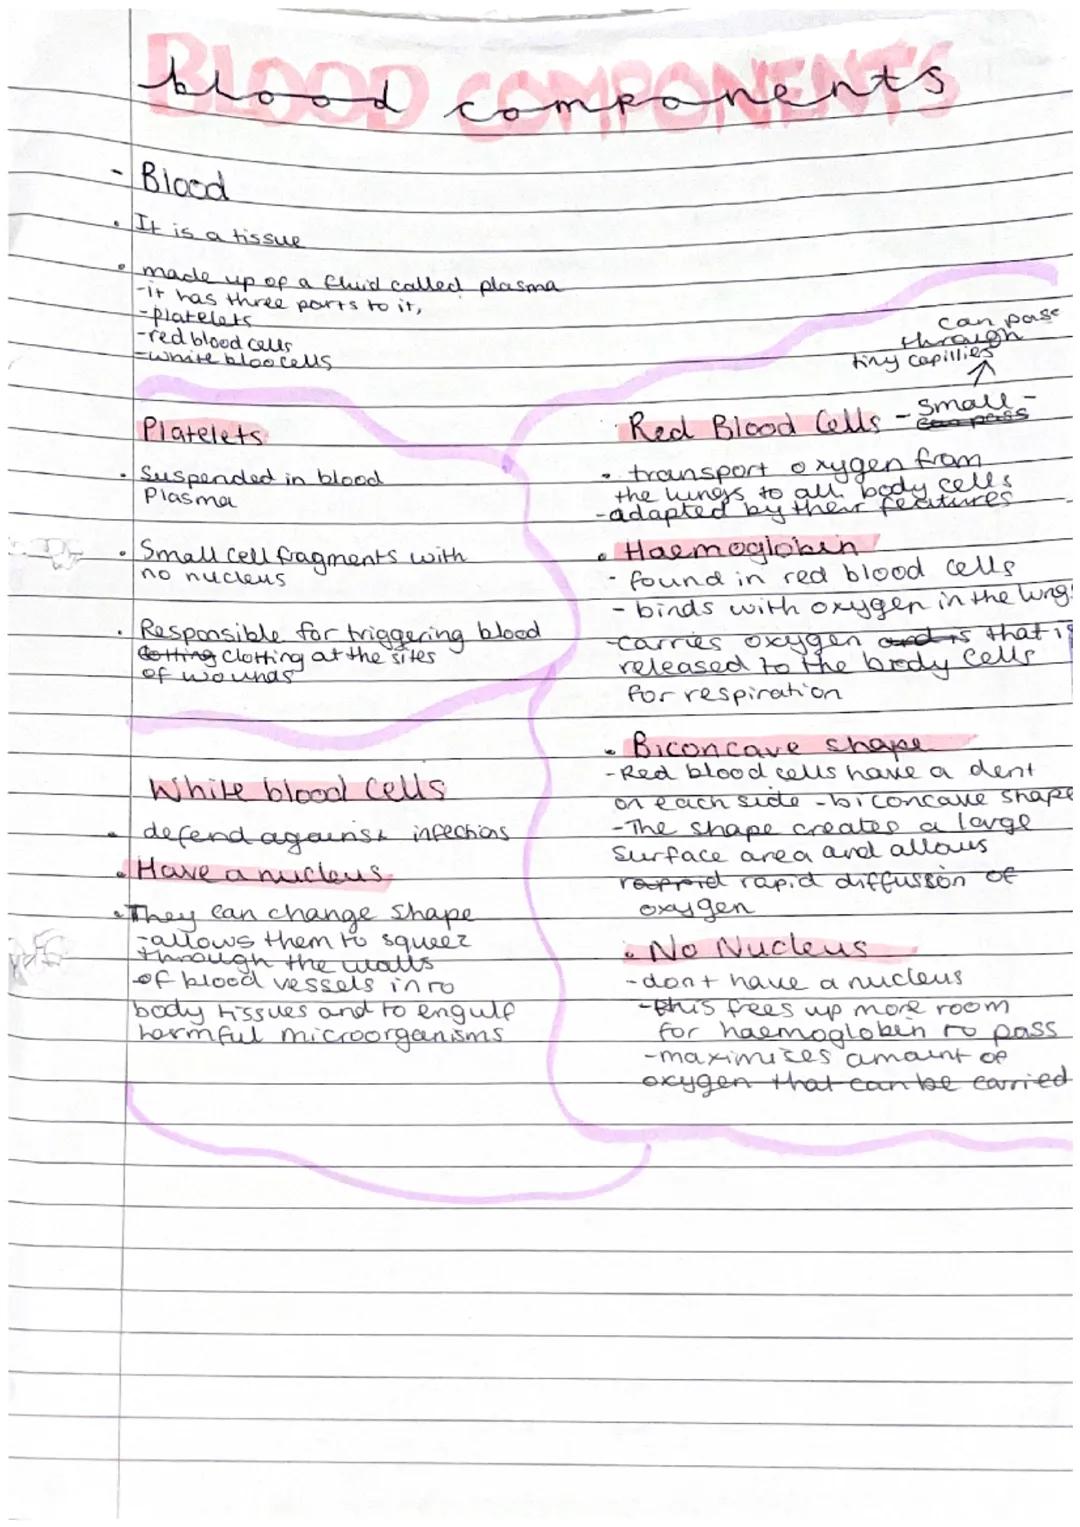 BLOOD COMPONENTS
blood components
- Blood
• It is a tissue
• made up of a fluid called plasma
- it has three parts to it,
- platelets
- red blood cells
- white bloo cells
Platelets
• Suspended in blood
Plasma
• Small cell fragments with
no nucleus
• Responsible for triggering blood
clotting at the sites
of wounds
White blood cells
• defend against infections
• Have a nucleus
• They can change shape
- allows them to squeez
through the walls
of blood vessels into
body tissues and to engulf
harmful microorganisms
can pass
through
tiny capillies
Red Blood Cells - Small -
can pass
• transport oxygen from
the lungs to all body cells
- adapted by their features
• Haemoglobin
- found in red blood cells
- binds with oxygen in the lungs
- carries oxygen and is that is
released to the body cells
for respiration
• Biconcave shape
- Red blood cells have a dent
on each side - biconcave shape
- The shape creates a large
surface area and allows
rapid diffussion of
oxygen
• No Nucleus
- dont have a nucleus
- this frees up more room
for haemoglobin to pass
- maximises amount of
oxygen that can be carried